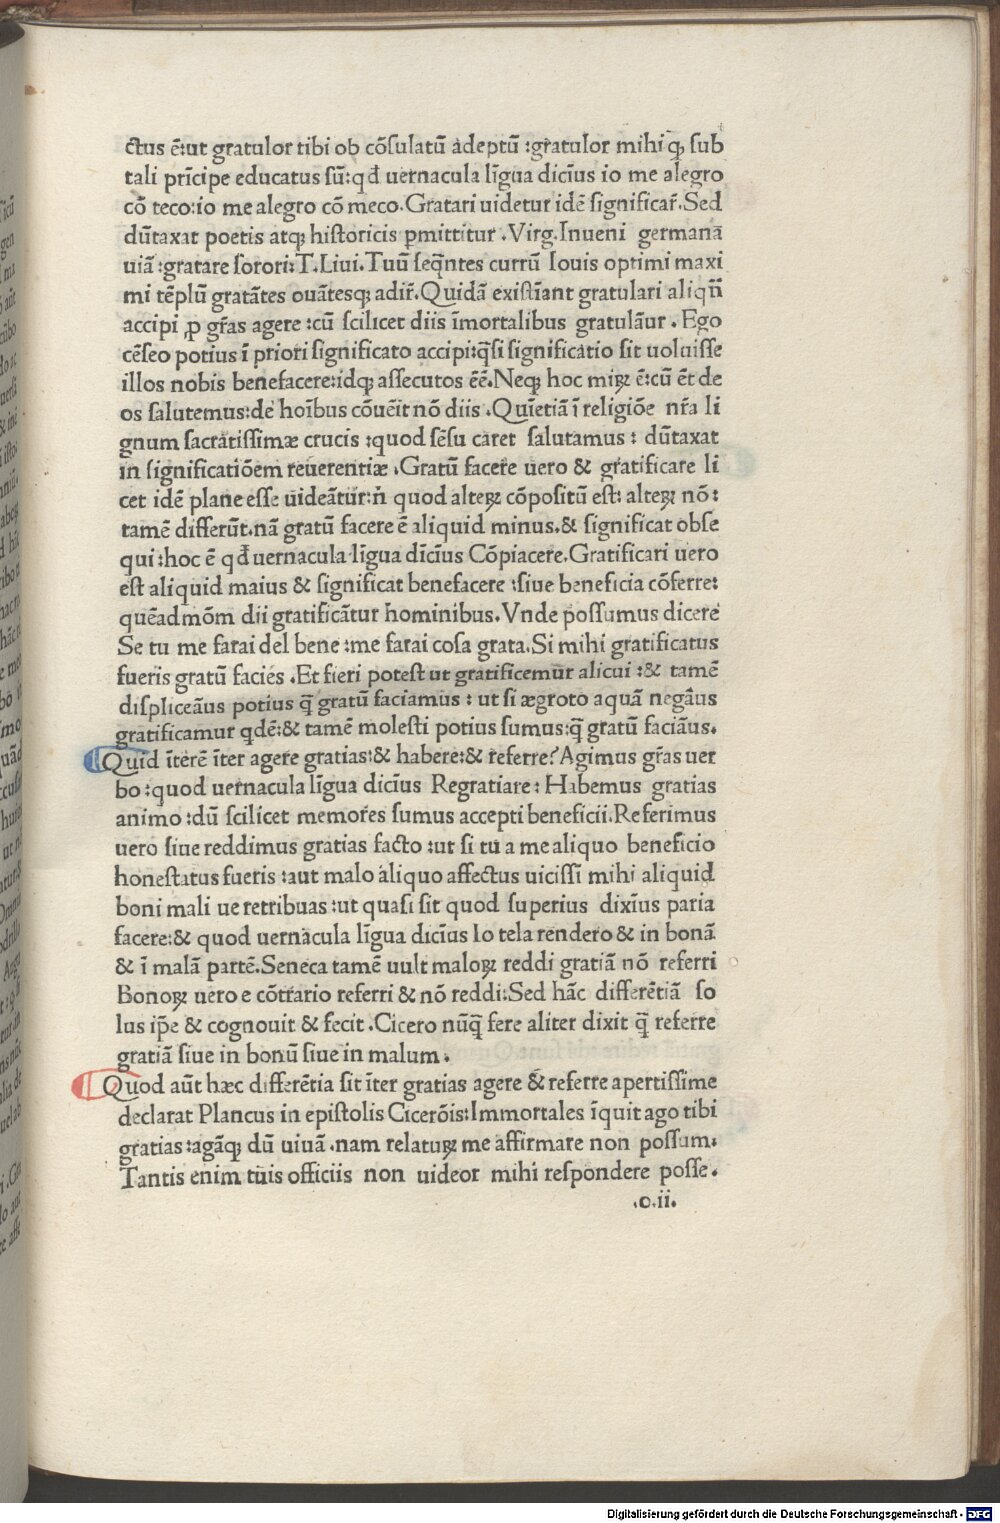 ctus ē:ut gratulor tibi ob cōsulatū adeptū :gratulor mihi qꝫ sub
tali prīcipe educatus sū:qđ uernacula līgua dicīus io me alegro
cō teco:io me alegro cō meco.Gratari uidetur idē significar̄.Sed
dūtaxat poetis atqꝫ historicis ꝑmittitur .Virg.Inueni germana
uiā :gratare sorori:T.Liui.Tuū seq̄ntes currū Iouis optimi maxi
mi tēplū gratātes ouātesqꝫ adir̄.Quidā existīant gratulari aliqn̄
accipi ꝓ gr̄as agere :cū scilicet diis īmortalibus gratulāur . Ego
cēseo potius ī priori significato accipi:q̄si significatio sit uoluisse
illos nobis benefacere:idqꝫ assecutos ēē.Neqꝫ hoc miꝝ ē:cū ēt de
os salutemus:de hoībus cōuēit nō diis .Quīetiā ī religiōe nr̄a li
gnum sacratissimæ crucis :quod sēsu caret salutamus : dūtaxat
in significatiōem reuerentiæ .Gratū facere uero & gratificare li
cet idē plane esse uideātur:n̄ quod alteꝝ cōpositū est: alteꝝ nō:
tamē differūt.nā gratū facere ē aliquid minus.& significat obse
qui:hoc ē qđ uernacula līgua dicīus Cōpiacere.Gratificari uero
est aliquid maius & significat benefacere :siue beneficia cōferre:
quēadmōm dii gratificātur hominibus.Vnde possumus dicere
Se tu me farai del bene :me farai cosa grata.Si mihi gratificatus
fueris gratū facies .Et fieri potest ut gratificemur alicui :& tamē
displiceāus potius q̄ gratū faciamus : ut si ægroto aquā negāus
gratificamur qdē:& tamē molesti potius sumus:q̄ gratū faciāus.
Quid īterē īter agere gratias:& habere:& referre?Agimus gr̄as uer
bo:quod uernacula līgua dicīus Regratiare: Habemus gratias
animo :dū scilicet memores sumus accepti beneficii.Referimus
uero siue reddimus gratias facto :ut si tu a me aliquo beneficio
honestatus fueris :aut malo aliquo affectus uicissī mihi aliquid
boni mali ue retribuas :ut quasi sit quod superius dixīus paria
facere:& quod uernacula līgua dicīus Io tela rendero & in bonā
& ī malā partē.Seneca tamē uult maloꝝ reddi gratiā nō referri
Bonoꝝ uero e cōtrario referri & nō reddi:Sed hāc differētiā so
lus ip̄e & cognouit & fecit .Cicero nūq̄ fere aliter dixit q̄ referre
gratiā siue in bonū siue in malum .
Quod aūt hæc differētia sit īter gratias agere & referre apertissime
declarat Plancus in epistolis Cicerōis:Immortales īquit ago tibi
gratias :agāqꝫ dū uiuā .nam relatuꝝ me affirmare non possum.
Tantis enim tuis officiis non uideor mihi respondere posse .
.o.ii.
Digitalisierung gefördert durch die Deutsche Forschungsgemeinschaft - DFG